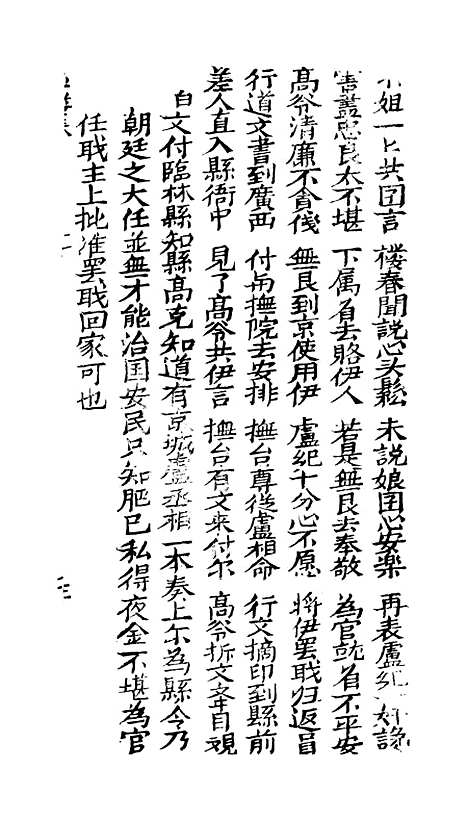 姐一〻共囯言 樓春聞説心头鬆 未説娘囯心安樂 再表盧𣏌奸諑
害盡忠良太不堪 下属有去賂伊人 若是無艮去奉敬 為官就有不平安
髙爺清廉不貪伐 無艮到京使用伊 盧𣏌十分心不愿 將伊罢耺归返員
行道文書到廣西 付帋撫院去安排 撫台尊從盧相命 行文摘印到縣前
差人直入縣衙中 見了髙爺共伊言 撫台有文來付尔 髙爺拆文在目視
白文付臨林縣知縣髙克知道有京城盧丞相一本奏上尔為縣令乃
朝廷之大任並無才能治国安民只知肥己私得夜金不堪為官
任耺主上批准罢耺回家可也